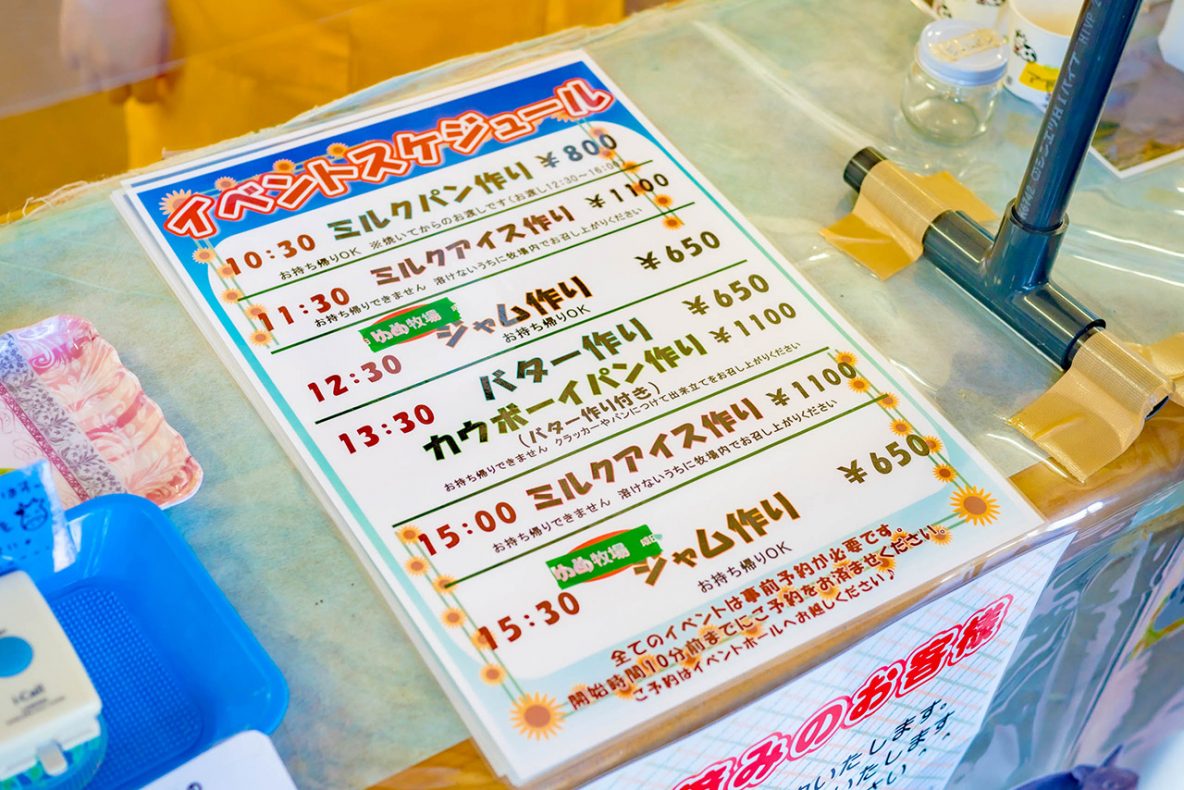 イベントスケジュール
10:30 ミルクパン作り ¥800
お持ち帰りOK ※焼いてからのお渡しです(お渡し12:30~16:00)
11:30 ミルクアイス作り ¥1100
お持ち帰りできません 溶けないうちに牧場内でお召し上がりください
12:30 ゆめ牧場 ジャム作り ¥650
お持ち帰りOK
13:30 バター作り ¥650
カウボーイパン作り ¥1100
(バター作り付き)
お持ち帰りできません クラッカーやパンにつけて出来立てをお召し上がりください
15:00 ミルクアイス作り ¥1100
お持ち帰りできません 溶けないうちに牧場内でお召し上がりください
15:30 ゆめ牧場 ジャム作り ¥650
お持ち帰りOK
全てのイベントは事前予約が必要です。
開始時間10分前までにご予約をお済ませください。
ご予約はイベントホールへお越しください♪
済みのお客様
いたします。
いたします。
ください
HIVP